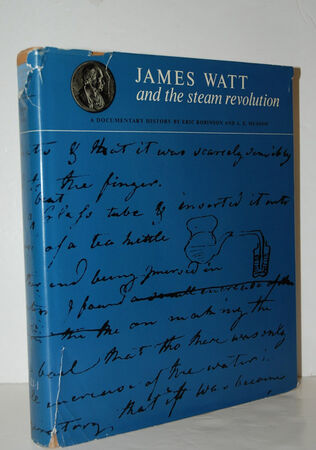 JAMES WATT
and the steam revolution
A DOCUMENTARY HISTORY BY ERIC ROBINSON AND A. E. MUSSON
& that it was scarcely sensible by
the finger.
Glass tube & inserted it into
of a tea kettle
and being immersed in
I found a small increase of the
the on making the
boil that tho there was only
increase of the water;
that it was become